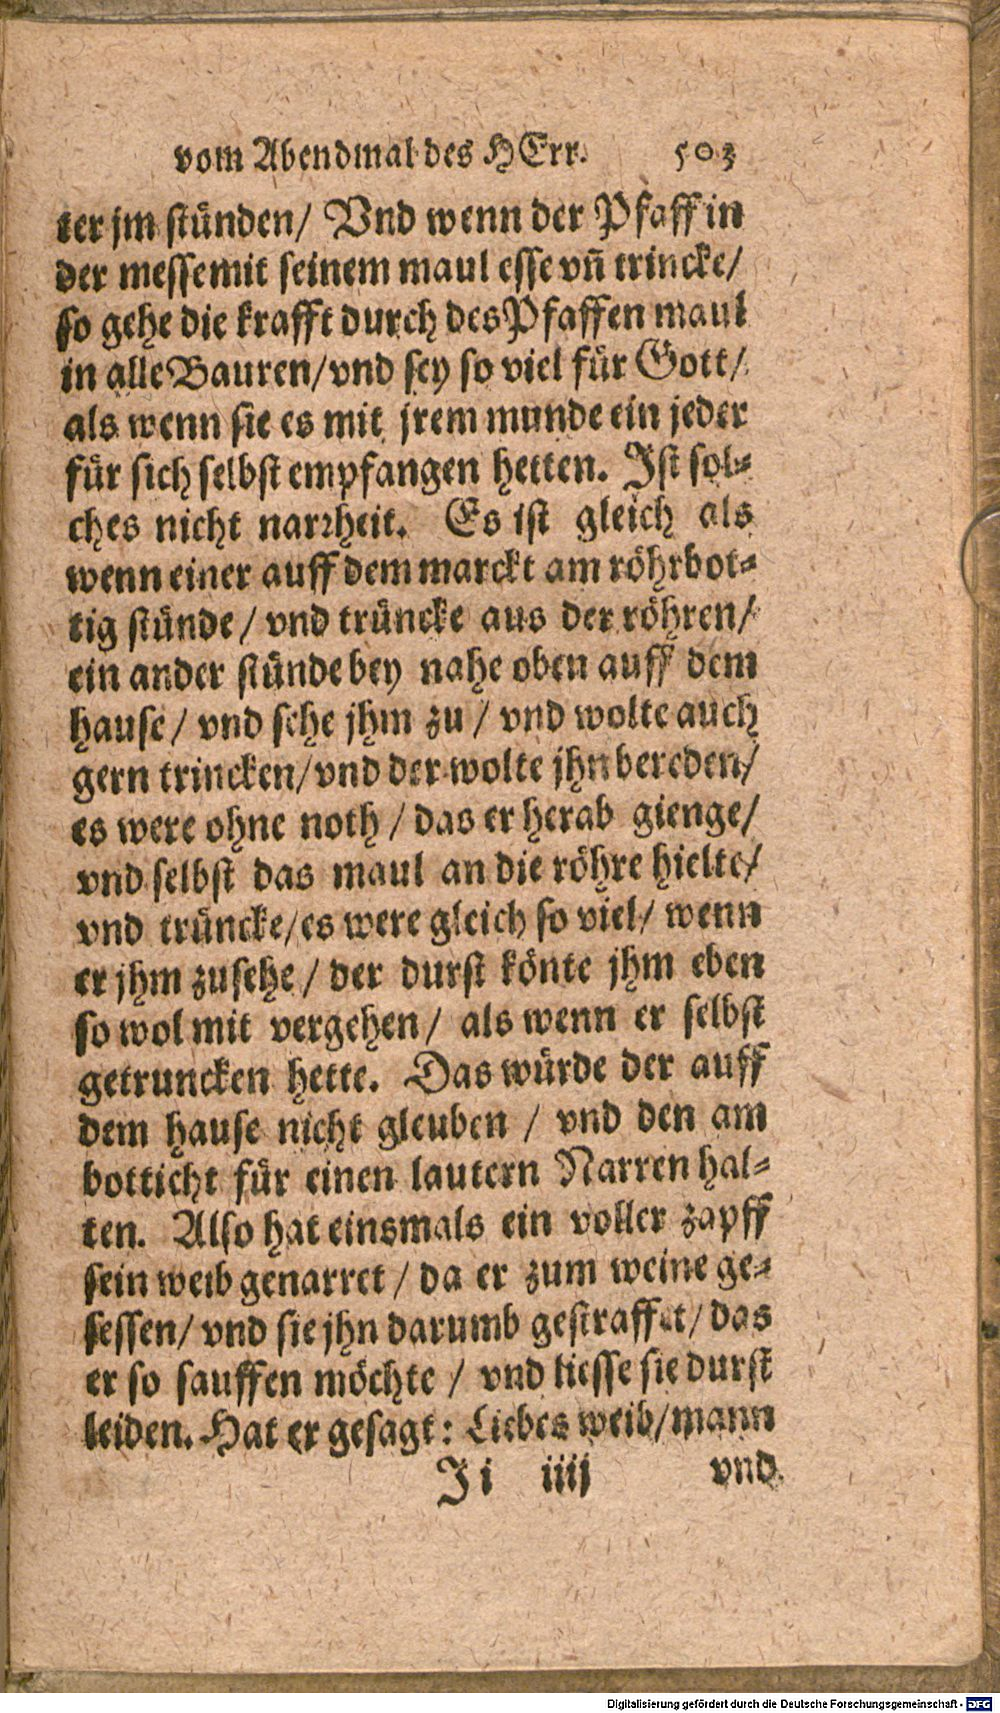 vom Abendmal des HErr. 503
ter jm stünden/ Vnd wenn der Pfaff in
der messe mit seinem maul esse vñ trincke/
so gehe die krafft durch des Pfaffen maul
in alle Bauren/vnd sey so viel für Gott/
als wenn sie es mit jrem munde ein jeder
für sich selbst empfangen hetten. Ist sol-
ches nicht narrheit. Es ist gleich als
wenn einer auff dem marckt am röhrbot-
tig stünde/ vnd trüncke aus der röhren/
ein ander stünde bey nahe oben auff dem
hause/ vnd sehe jhm zu/ vnd wolte auch
gern trincken/vnd der wolte jhn bereden/
es were ohne noth/ das er herab gienge/
vnd selbst das maul an die röhre hielte/
vnd trüncke/es were gleich so viel/ wenn
er jhm zusehe/ der durst könte jhm eben
so wol mit vergehen/ als wenn er selbst
getruncken hette. Das würde der auff
dem hause nicht gleuben/ vnd den am
botticht für einen lautern Narren hal-
ten. Also hat einsmals ein voller zapff
sein weib genarret/ da er zum weine ge-
sessen/ vnd sie jhn darumb gestraffet/ das
er so sauffen möchte/ vnd liesse sie durst
leiden. Hat er gesagt: Liebes weib/mann
Ji iiij vnd
Digitalisierung gefördert durch die Deutsche Forschungsgemeinschaft - DFG